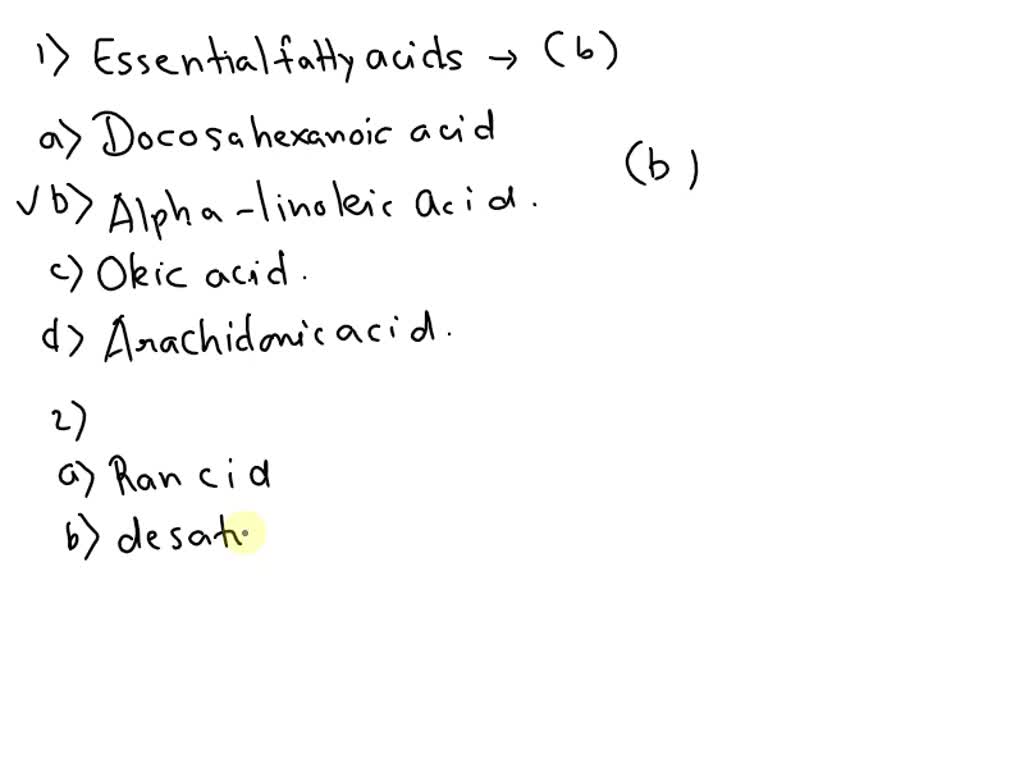 1) Essential fatty acids → (b)
a) Docosahexanoic acid
(b)
✓b) Alpha-linoleic Acid.
c) Oleic acid.
d) Arachidonic acid.
2)
a) Rancid
b) desat